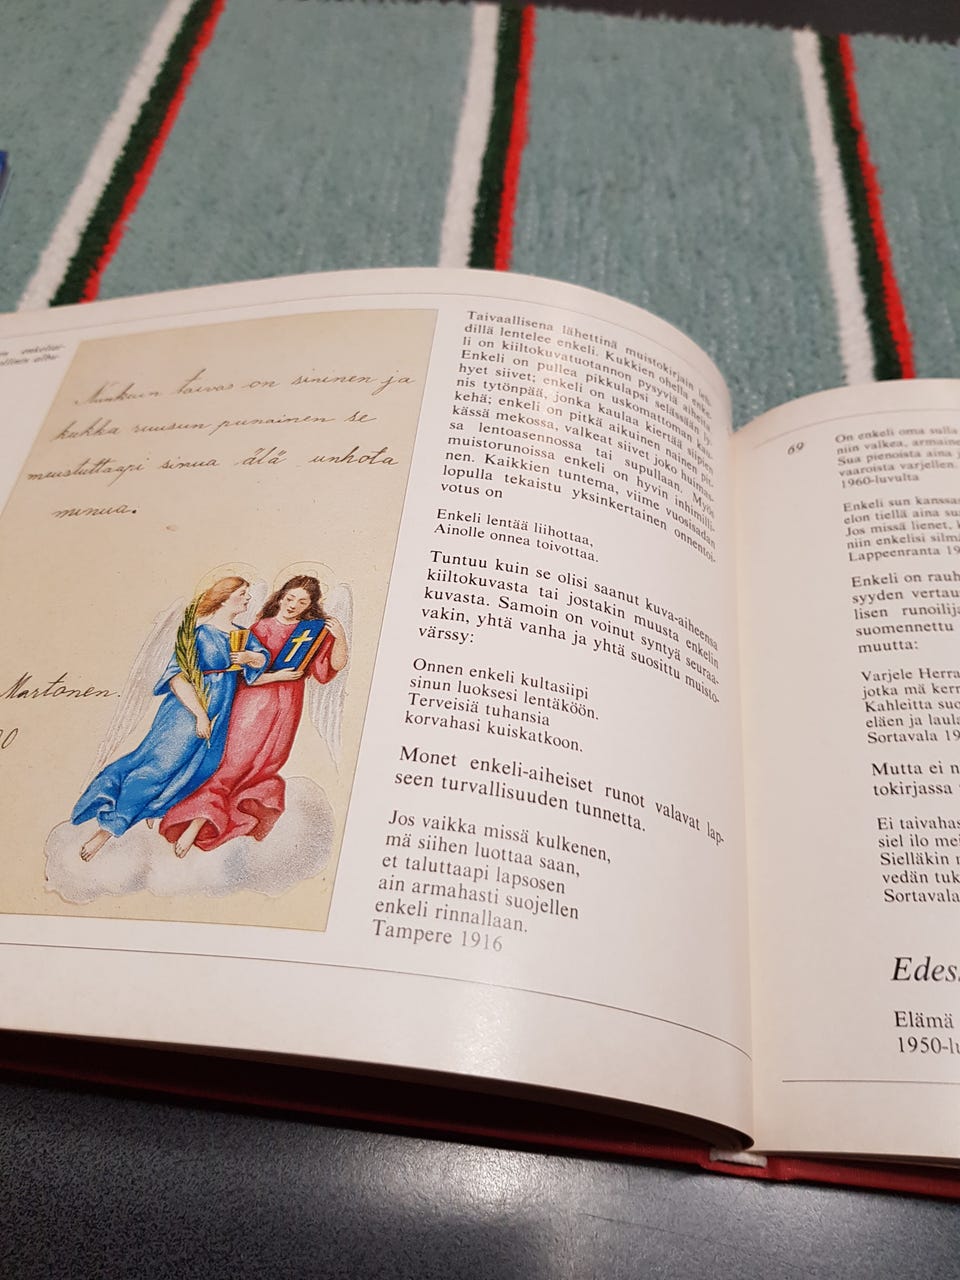 enkeliai-
Niinkuin taivas on sininen ja
kukka ruusun punainen se
muistuttaapi sinua älä unhota
minua.
Martonen.
Taivaallisena lähettinä muistokirjain leh-
dillä lentelee enkeli. Kukkien ohella enke-
li on kiiltokuvatuotannon pysyviä aiheita
Enkeli on pullea pikkulapsi selässään ly-
hyet siivet; enkeli on uskomattoman kau-
nis tytönpää, jonka kaulaa kiertää siipien
kehä; enkeli on pitkä aikuinen nainen pit-
kässä mekossa, valkeat siivet joko huimas-
sa lentoasennossa tai supullaan. Myös
muistorunoissa enkeli on hyvin inhimilli-
nen. Kaikkien tuntema, viime vuosisadan
lopulla tekaistu yksinkertainen onnentoi-
votus on
Enkeli lentää liihottaa,
Ainolle onnea toivottaa.
Tuntuu kuin se olisi saanut kuva-aiheensa
kiiltokuvasta tai jostakin muusta enkelin
kuvasta. Samoin on voinut syntyä seuraa-
vakin, yhtä vanha ja yhtä suosittu muisto-
värssy:
Onnen enkeli kultasiipi
sinun luoksesi lentäköön.
Terveisiä tuhansia
korvahasi kuiskatkoon.
Monet enkeli-aiheiset runot valavat lap-
seen turvallisuuden tunnetta.
Jos vaikka missä kulkenen,
mä siihen luottaa saan,
et taluttaapi lapsosen
ain armahasti suojellen
enkeli rinnallaan.
Tampere 1916
69
On enkeli oma sulla
niin valkea, armaine
Sua pienoista aina j
vaaroista varjellen.
1960-luvulta
Enkeli sun kanssas
elon tiellä aina su
Jos missä lienet, k
niin enkelisi silmä
Lappeenranta 19
Enkeli on rauh
syyden vertau
lisen runoilija
suomennettu
muutta:
Varjele Herra
jotka mä kerr
Kahleitta suo
eläen ja laula
Sortavala 19
Mutta ei n
tokirjassa
Ei taivahas
siel ilo mei
Sielläkin n
vedän tuk
Sortavala
Edes
Elämä
1950-lu